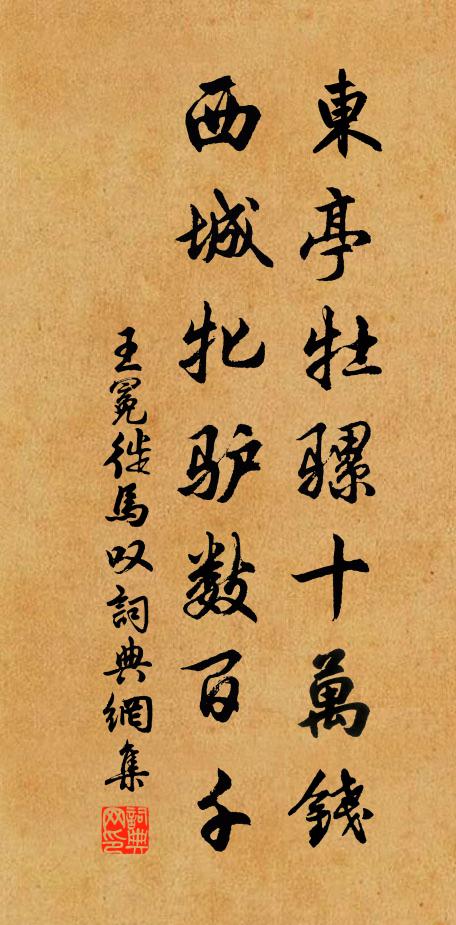 東亭牡騾十萬錢
西城牝驴数百千
王冕徙馬叹詞典網集
詞典网印